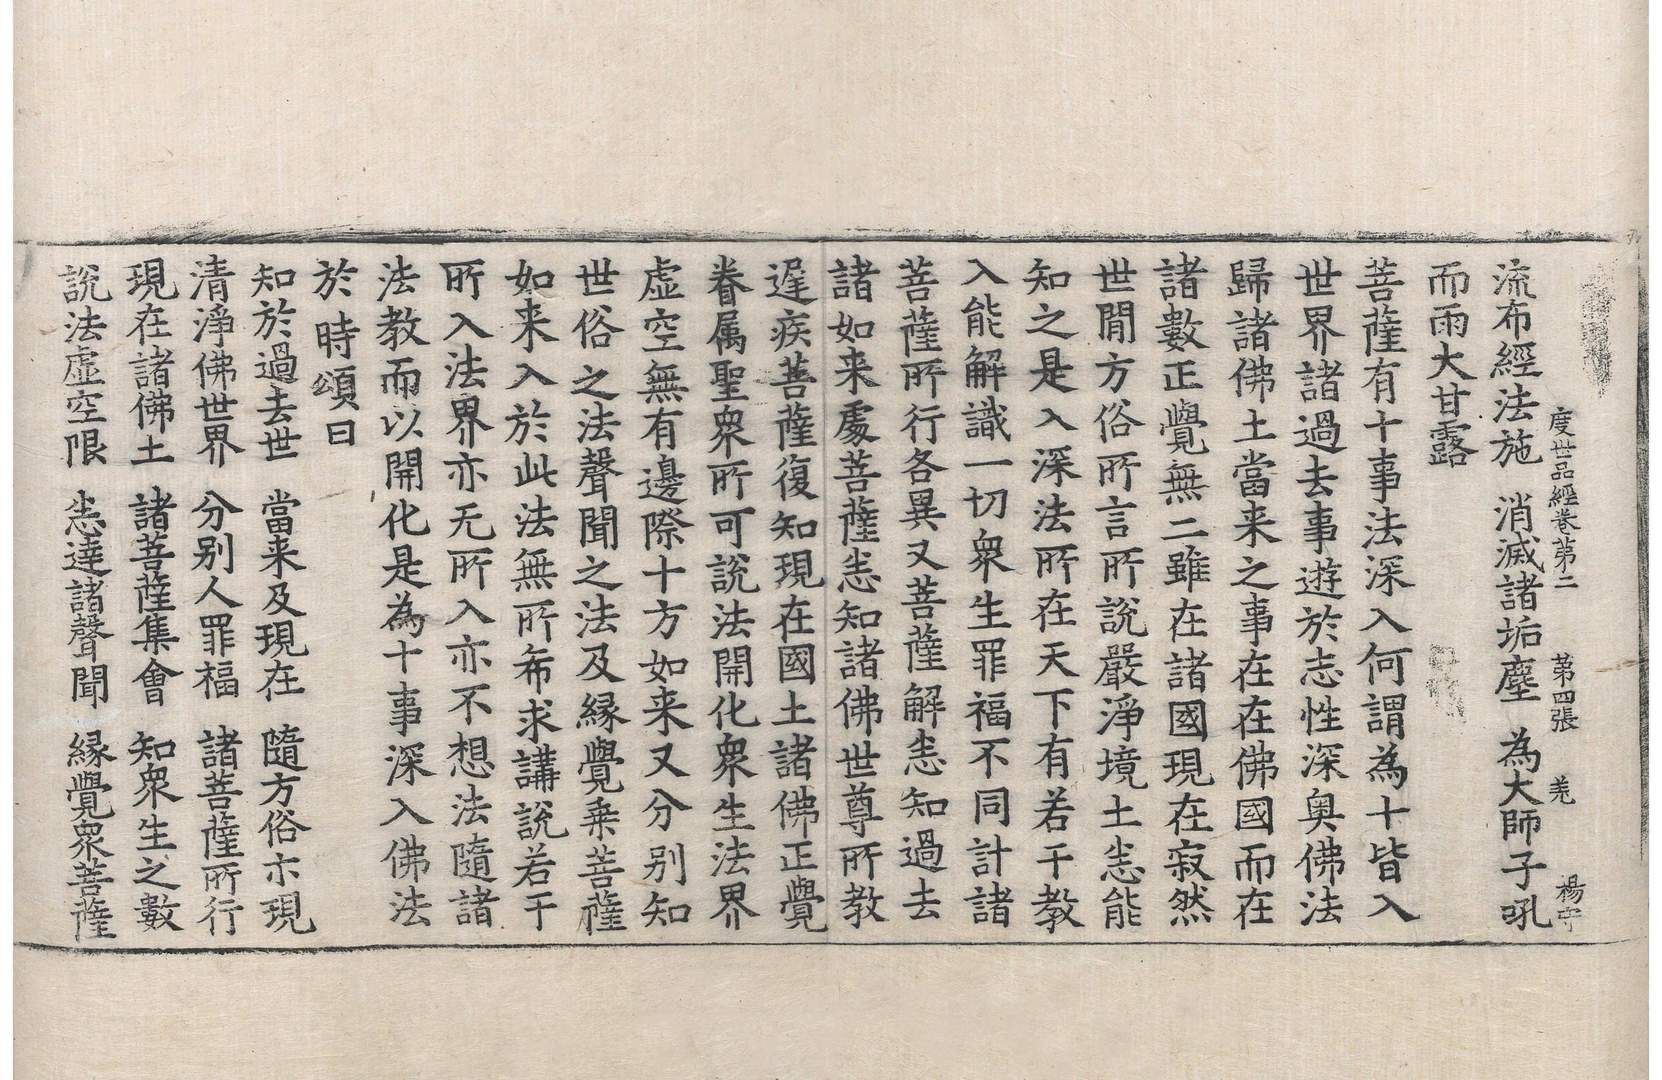 度世品經卷第二 第四張 羌 楊守
流布經法施 消滅諸垢塵 為大師子吼
而雨大甘露
菩薩有十事法深入何謂為十皆入
世界諸過去事遊於志性深奥佛法
歸諸佛土當来之事在在佛國而在
諸數正覺無二雖在諸國現在寂然
世間方俗所言所說嚴淨境土悉能
知之是入深法所在天下有若干教
入能解識一切衆生罪福不同計諸
菩薩所行各異又菩薩解悉知過去
諸如来處菩薩悉知諸佛世尊所教
遟疾菩薩復知現在國土諸佛正覺
眷属聖衆所可說法開化衆生法界
虚空無有邊際十方如来又分别知
世俗之法聲聞之法及縁覺乗菩薩
如来入於此法無所布求講說若干
所入法界亦无所入亦不想法隨諸
法教而以開化是為十事深入佛法
於時頌曰
知於過去世 當来及現在 隨方俗亦現
清淨佛世界 分别人罪福 諸菩薩所行
現在諸佛土 諸菩薩集會 知衆生之數
說法虚空限 悉達諸聲聞 縁覺衆菩薩